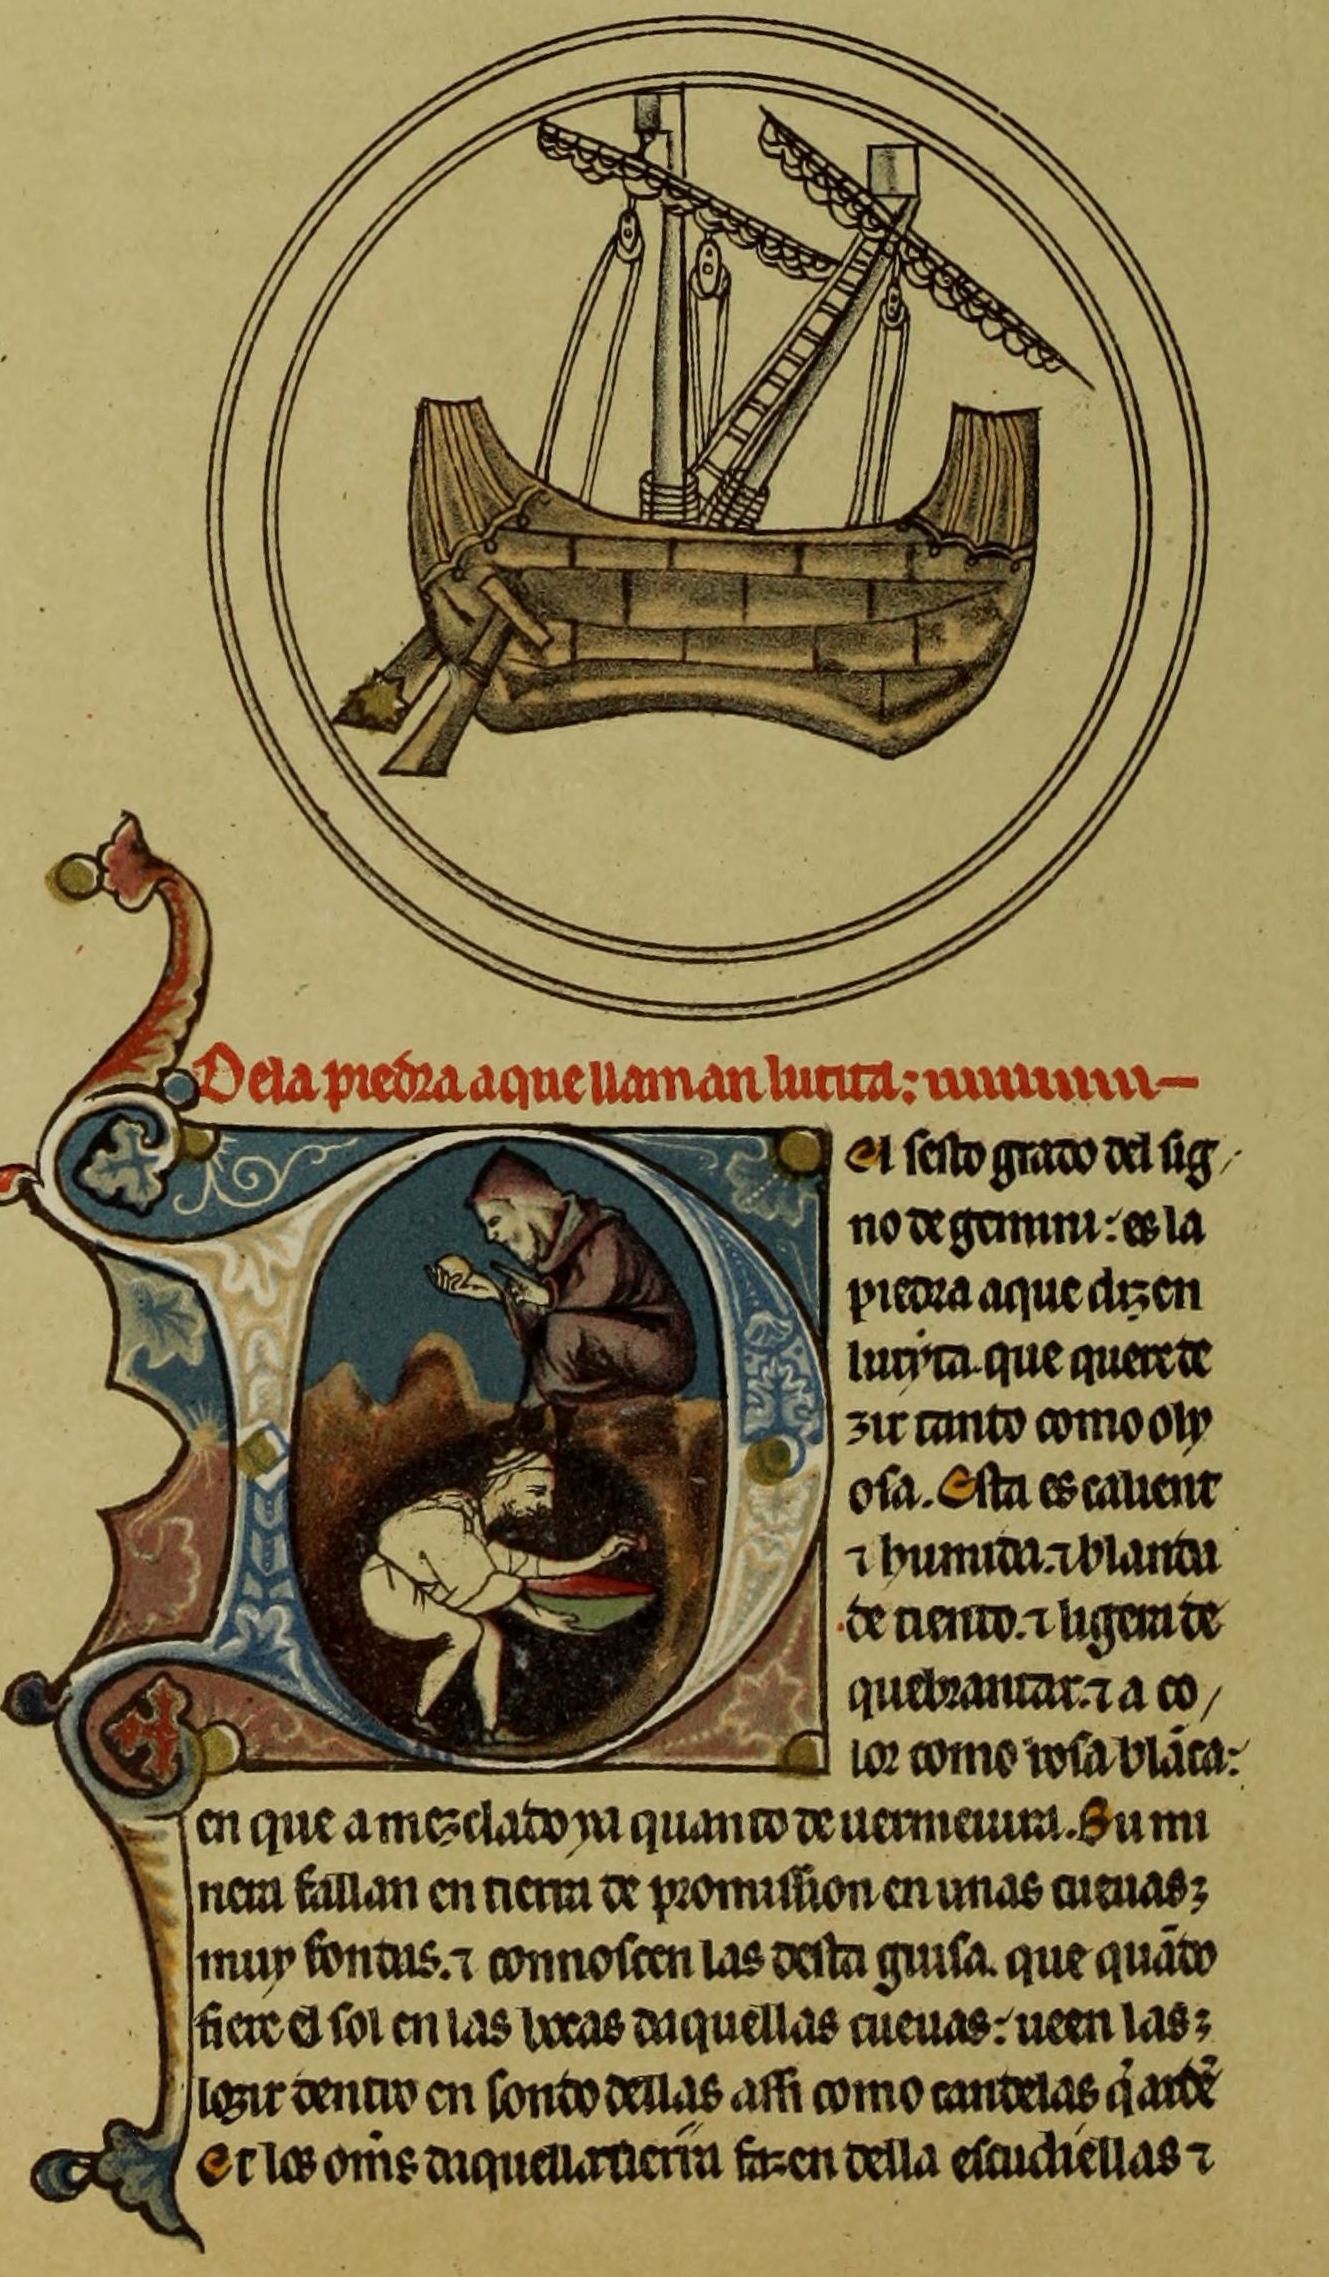 De la piedra a que llaman lurita:
El sesto grado del sig
no de gemini: es la
piedra a que dizen
luryta. que quere de
zir tanto como oly
osa. Esta es calient
⁊ humida. ⁊ blanda
de tiento. ⁊ ligera de
quebrantar. ⁊ a co
lor como rosa blāca:
en que a mezclado ya quanto de uermeiura. Su mi
nera fallan en tierra de promission en unas cueuas;
muy fondas. ⁊ connoscen las desta guisa. que quādo
fiere el sol en las bocas daquellas cueuas: ueen las;
lozir dentro en fondo dellas assi como candelas q̄ ardē
Et los omēs daquella tierra fazen della escudiellas ⁊